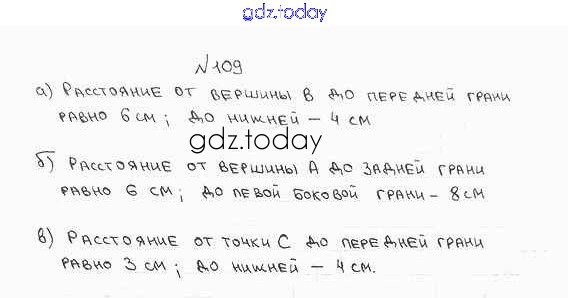 gdz.today
№109
а) Расстояние от вершины В до передней грани
равно 6 см; до нижней – 4 см
gdz.today
б) Расстояние от вершины А до задней грани
равно 6 см; до левой боковой грани – 8 см
в) Расстояние от точки С до передней грани
равно 3 см; до нижней – 4 см.